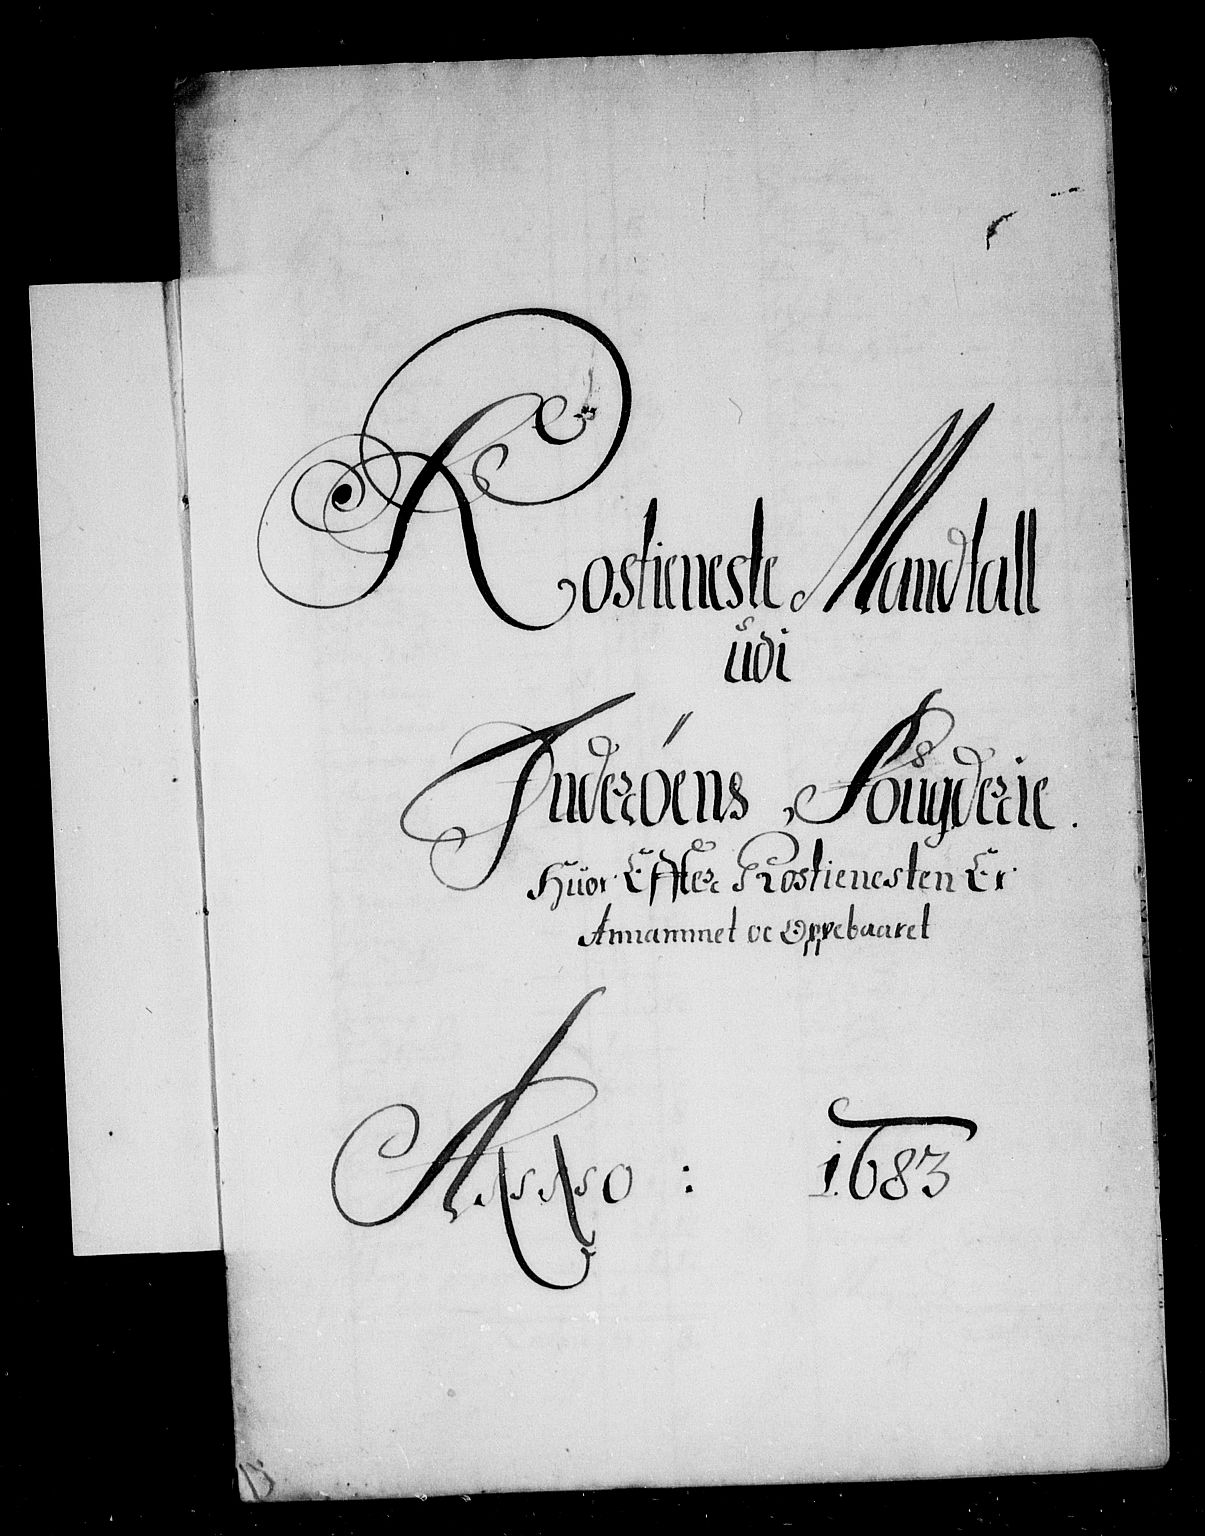 Rostieneste Mandtall
udi
Inderöens Fougderie.
Huor Effter Rostienesten Er
Annammet oc Oppebaaret
ANNO : 1683